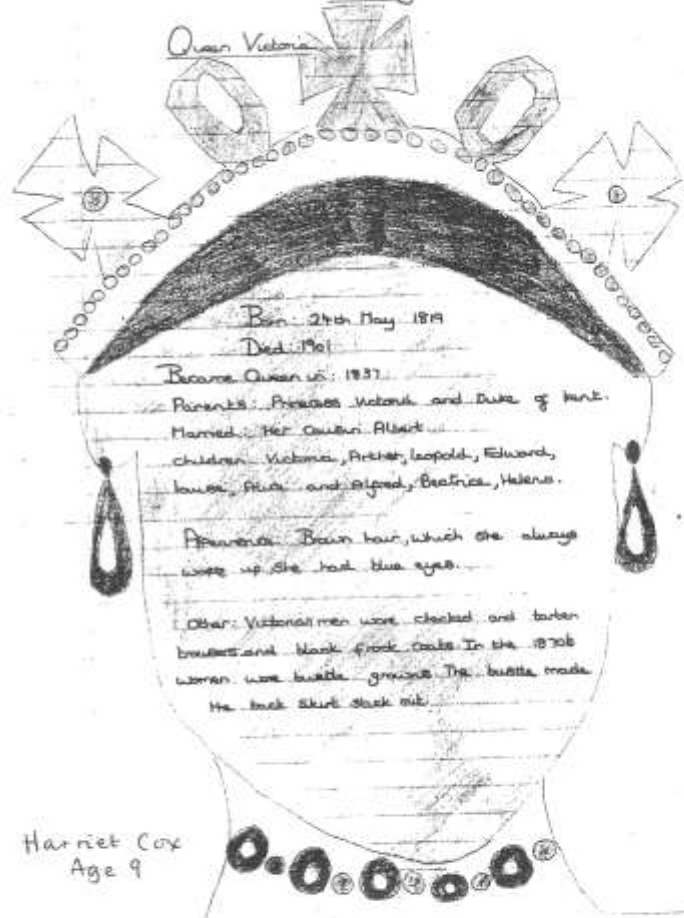 Queen Victoria
Born: 24th May 1819
Died: 1901
Became Queen in: 1837
Parents: Princess Victoria and Duke of kent.
Married: Her Cousin Albert
children Victoria, Arther, leopold, Edward,
louise, Alice and Alfred, Beatrice, Helena.
Brown hair, which she always
wore up she had blue eyes.
Other: Victorian men wore checked and tarten
trousers and black frock coats. In the 1870s
women wore bustle The bustle made
the back skirt stick out.
Harriet Cox
Age 9